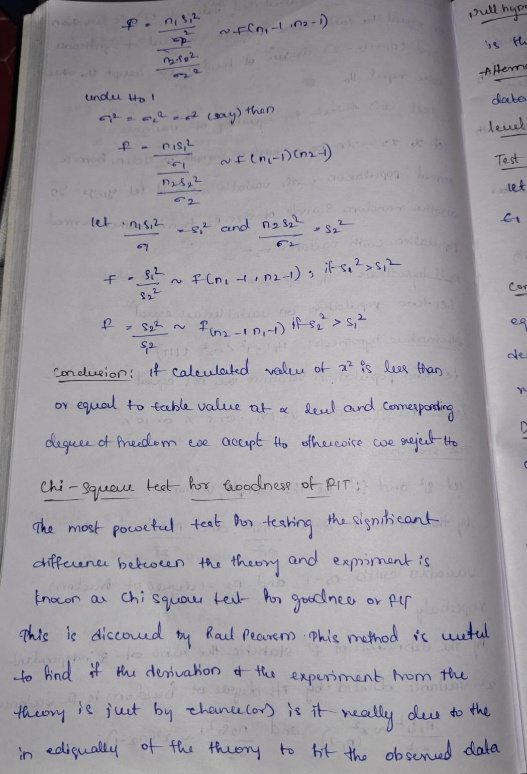 f = n₁s₁²
σ₁²
n₂s₂²
σ₂²
~ F(n₁-1, n₂-1)
under H₀!
σ₁² = σ₂² = σ² (say) then
f = n₁s₁²
σ₁
n₂s₂²
σ₂
~ F(n₁-1)(n₂-1)
let n₁s₁²/σ₁ = s₁² and n₂s₂²/σ₂ = s₂²
f = s₁²/s₂² ~ F(n₁-1, n₂-1), if s₁² > s₁²
f = s₂²/s₁² ~ F(n₂-1, n₁-1) if s₂² > s₁²
Conclusion: if calculated value of x² is less than
or equal to table value at α level and corresponding
degree of freedom we accept H₀ otherwise we reject H₀
Chi-square test for Goodness of FIT:
The most powerful test for testing the significant
difference between the theory and expriment is
known as chi square test for goodness or fit
This is discoued by Karl Pearson. This method is useful
to find if the derivation of the experiment from the
theory is just by chance (or) is it really due to the
in ediqually of the theory to fit the observed data
Null hypo
is th
Altern
data
level
Test
let
Con
eq
de